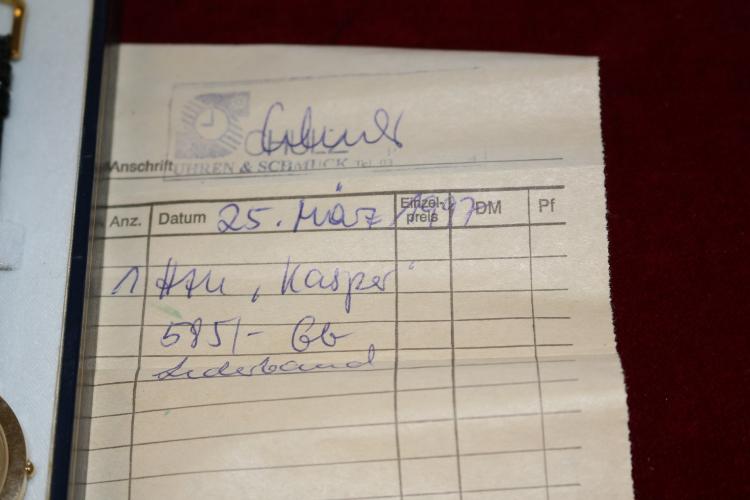 Anschrift
UHREN & SCHMUCK Tel.
Anz. Datum 25. März 1997 Einzel-preis DM Pf
1 HAU „Kasper"
585/- Gb
Lederband